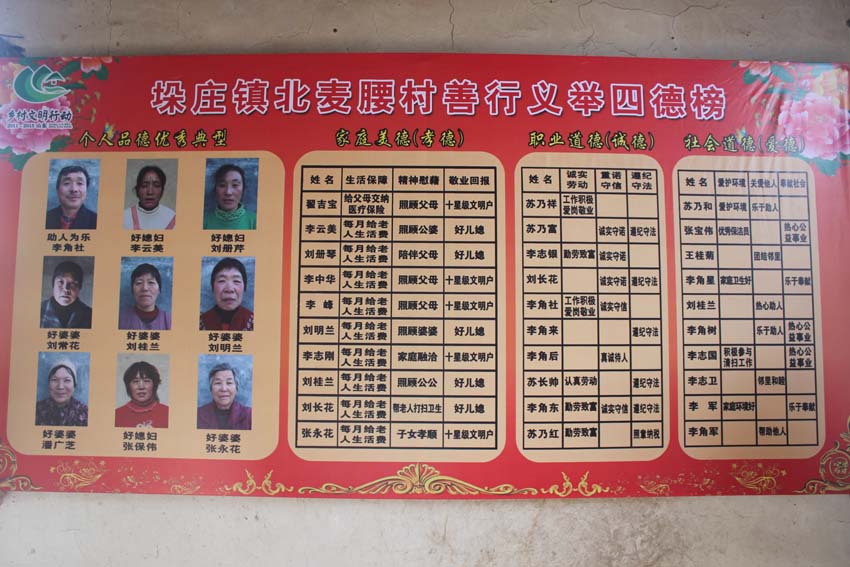 垛庄镇北麦腰村善行义举四德榜
乡村文明行动
个人品德优秀典型
助人为乐
李角社
好媳妇
李云美
好媳妇
刘册芹
好婆婆
刘常花
好婆婆
刘桂兰
好婆婆
刘明兰
好婆婆
潘广芝
好媳妇
张保伟
好婆婆
张永花
家庭美德(孝德)
姓名 生活保障 精神慰藉 敬业回报
翟吉宝 给父母交纳医疗保险 照顾父母 十星级文明户
李云美 每月给老人生活费 照顾公婆 好儿媳
刘册琴 每月给老人生活费 陪伴父母 好儿媳
李中华 每月给老人生活费 照顾父母 十星级文明户
李峰 每月给老人生活费 照顾父母 十星级文明户
刘明兰 每月给老人生活费 照顾婆婆 好儿媳
李志刚 每月给老人生活费 家庭融洽 十星级文明户
刘桂兰 每月给老人生活费 照顾公公 好儿媳
刘长花 每月给老人生活费 帮老人打扫卫生 十星级文明户
张永花 每月给老人生活费 子女孝顺 十星级文明户
职业道德(诚德)
姓名 诚实劳动 重诺守信 遵纪守法
苏乃祥 工作积极爱岗敬业
苏乃富 诚实守诺 遵纪守法
李志银 勤劳致富 诚实守诺
刘长花 诚实守诺 遵纪守法
李角社 工作积极爱岗敬业 诚实守信
李角来 遵纪守法
李角后 真诚待人
苏长帅 认真劳动 遵纪守法
李角东 勤劳致富 诚实守信 遵纪守法
苏乃红 勤劳致富 照章纳税
社会道德(爱德)
姓名 爱护环境 关爱他人 奉献社会
苏乃和 爱护环境 乐于助人
张宝伟 优秀保洁员 热心公益事业
王桂菊 团结邻里
李角星 家庭卫生好 乐于奉献
刘桂兰 热心助人
李角树 乐于助人 热心公益事业
李志国 积极参与清扫工作 热心公益事业
李志卫 邻里和睦
李军 家庭环境好 乐于奉献
李角军 帮助他人